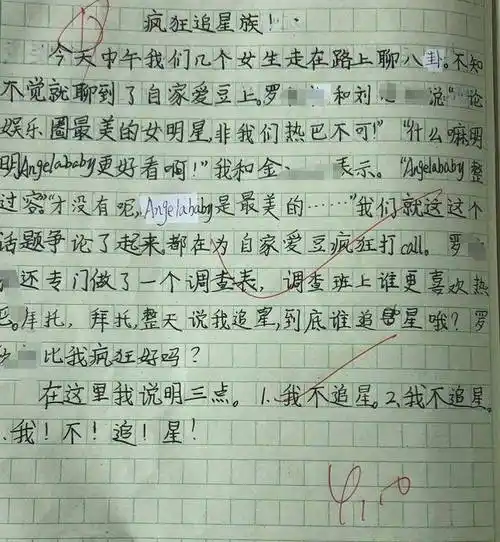 疯狂追星族!
今天中午我们几个女生走在路上聊八卦。不知
不觉就聊到了自家爱豆上。罗 和刘 说“论
娱乐圈最美的女明星,非我们热巴不可!” “什么嘛,明
明Angelababy更好看啊!”我和金 表示。“Angelababy整
过容”“才没有呢,Angelababy是最美的……”我们就这这个
话题争论了起来,都在为自家爱豆疯狂打call。罗
还专门做了一个调查表,调查班上谁更喜欢热
巴。拜托,拜托,整天说我追星,到底谁追星哦?罗
比我疯狂好吗?
在这里我说明三点。1.我不追星。2.我不追星。
.我!不!追!星!